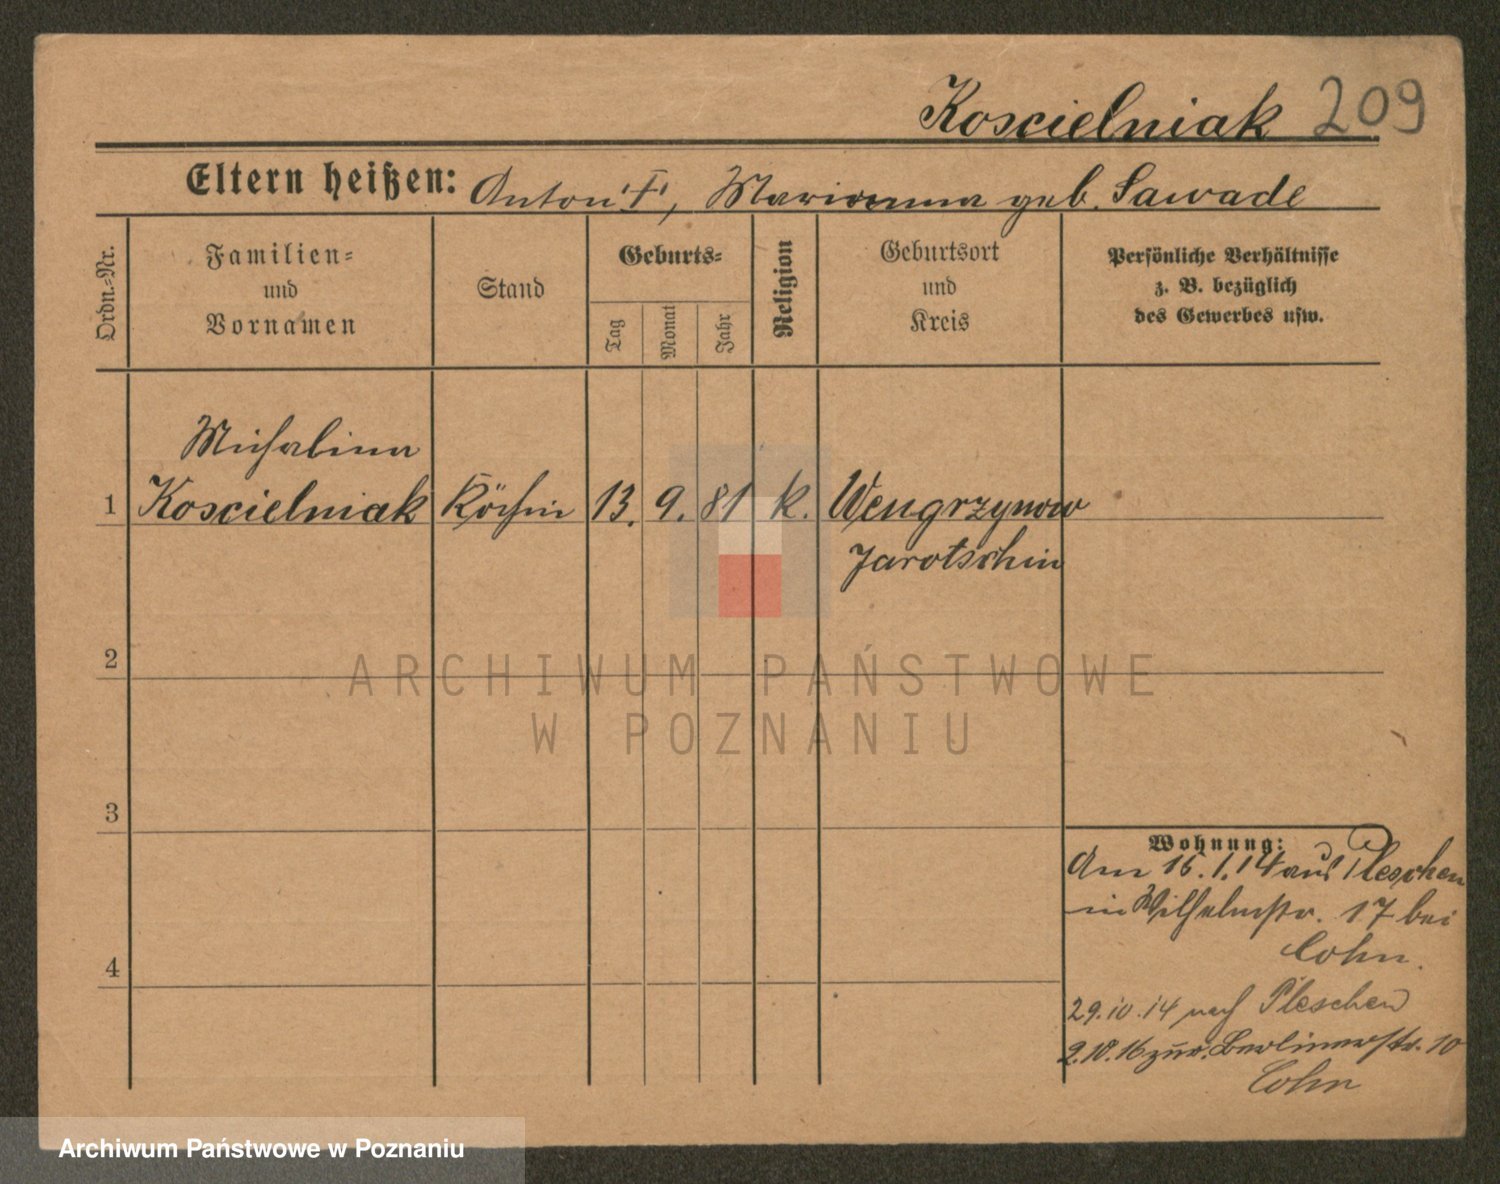 Koscielniak 209
Eltern heißen: Anton †, Marianna geb. Sawade
Ordn.-Nr.
Familien-
und
Vornamen
Stand
Geburts-
Tag
Monat
Jahr
Religion
Geburtsort
und
Kreis
Persönliche Verhältnisse
z. B. bezüglich
des Gewerbes usw.
Michalina
1 Koscielniak Köchin 13. 9. 81 k. Wengrzynow
Jarotschin
2
3
4
Wohnung:
Am 16.1.14 aus Pleschen
in Wilhelmstr. 17 bei
Cohn.
29.10.14 nach Pleschen
2.10.16 zur. Berlinerstr. 10
Cohn
ARCHIWUM PAŃSTWOWE
W POZNANIU
Archiwum Państwowe w Poznaniu